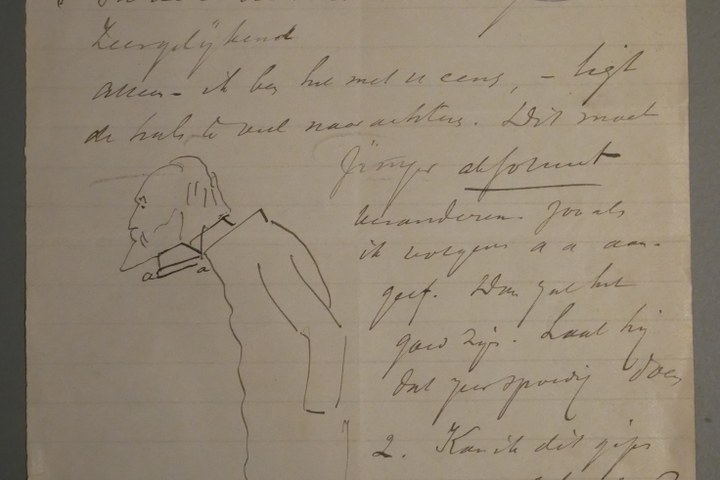 Zeergelijkend
alleen – ik ben het met u eens, – ligt
de hals te veel naar achteren. Dit moet
absoluut
veranderen. Zooals
ik volgens a a aan-
geef. Dan zal het
goed zijn. Laat hij
dat zeer spoedig doen
a a
2. Kan ik dit gips